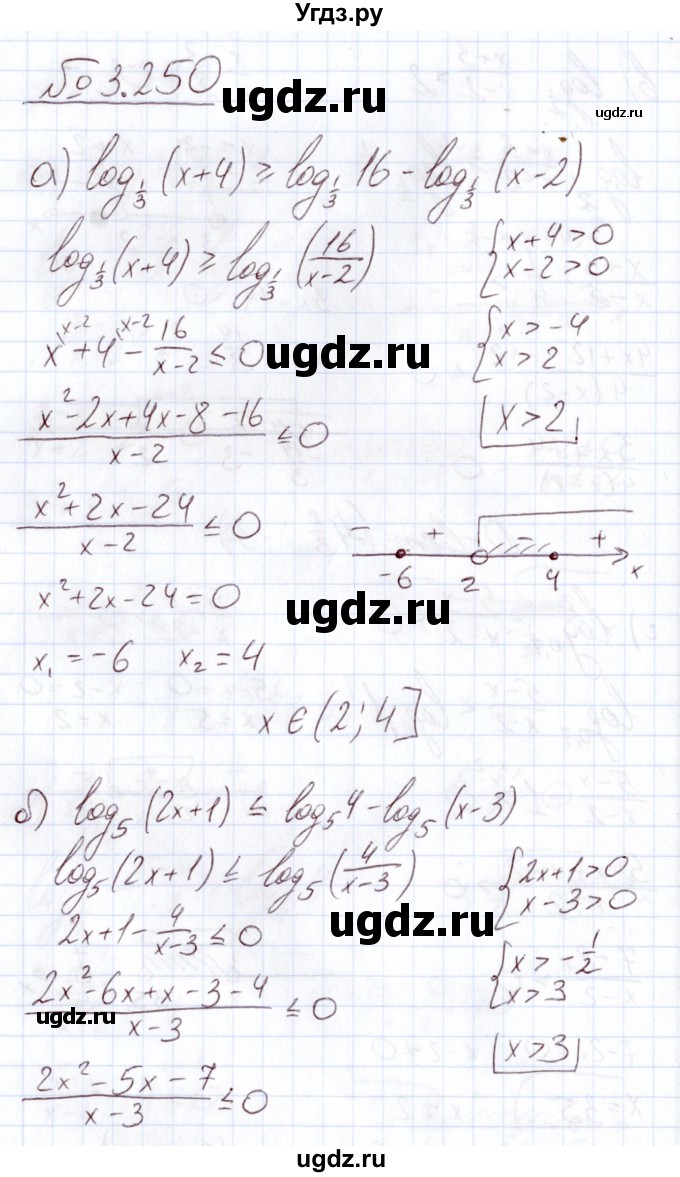 Угдз.ру
№ 3.250
ugdz.ru
ugdz.ru
а) log_{1/3} (x+4) ≥ log_{1/3} 16 - log_{1/3} (x-2)
log_{1/3} (x+4) ≥ log_{1/3} (16/(x-2))
{ x+4>0
x-2>0
x^{\x-2} + 4^{\x-2} - 16/(x-2) ≤ 0
ugdz.ru
{ x>-4
x>2
(x²-2x+4x-8-16)/(x-2) ≤ 0
x>2
(x²+2x-24)/(x-2) ≤ 0
- + - +
-6 2 4 x
x²+2x-24=0
ugdz.ru
x₁=-6 x₂=4
x∈(2;4]
б) log₅ (2x+1) ≤ log₅ 4 - log₅ (x-3)
log₅ (2x+1) ≤ log₅ (4/(x-3))
{ 2x+1>0
x-3>0
2x+1 - 4/(x-3) ≤ 0
ugdz.ru
{ x>-1/2
x>3
(2x²-6x+x-3-4)/(x-3) ≤ 0
ugdz.ru
x>3
(2x²-5x-7)/(x-3) ≤ 0
ugdz.ru
ugdz.ru